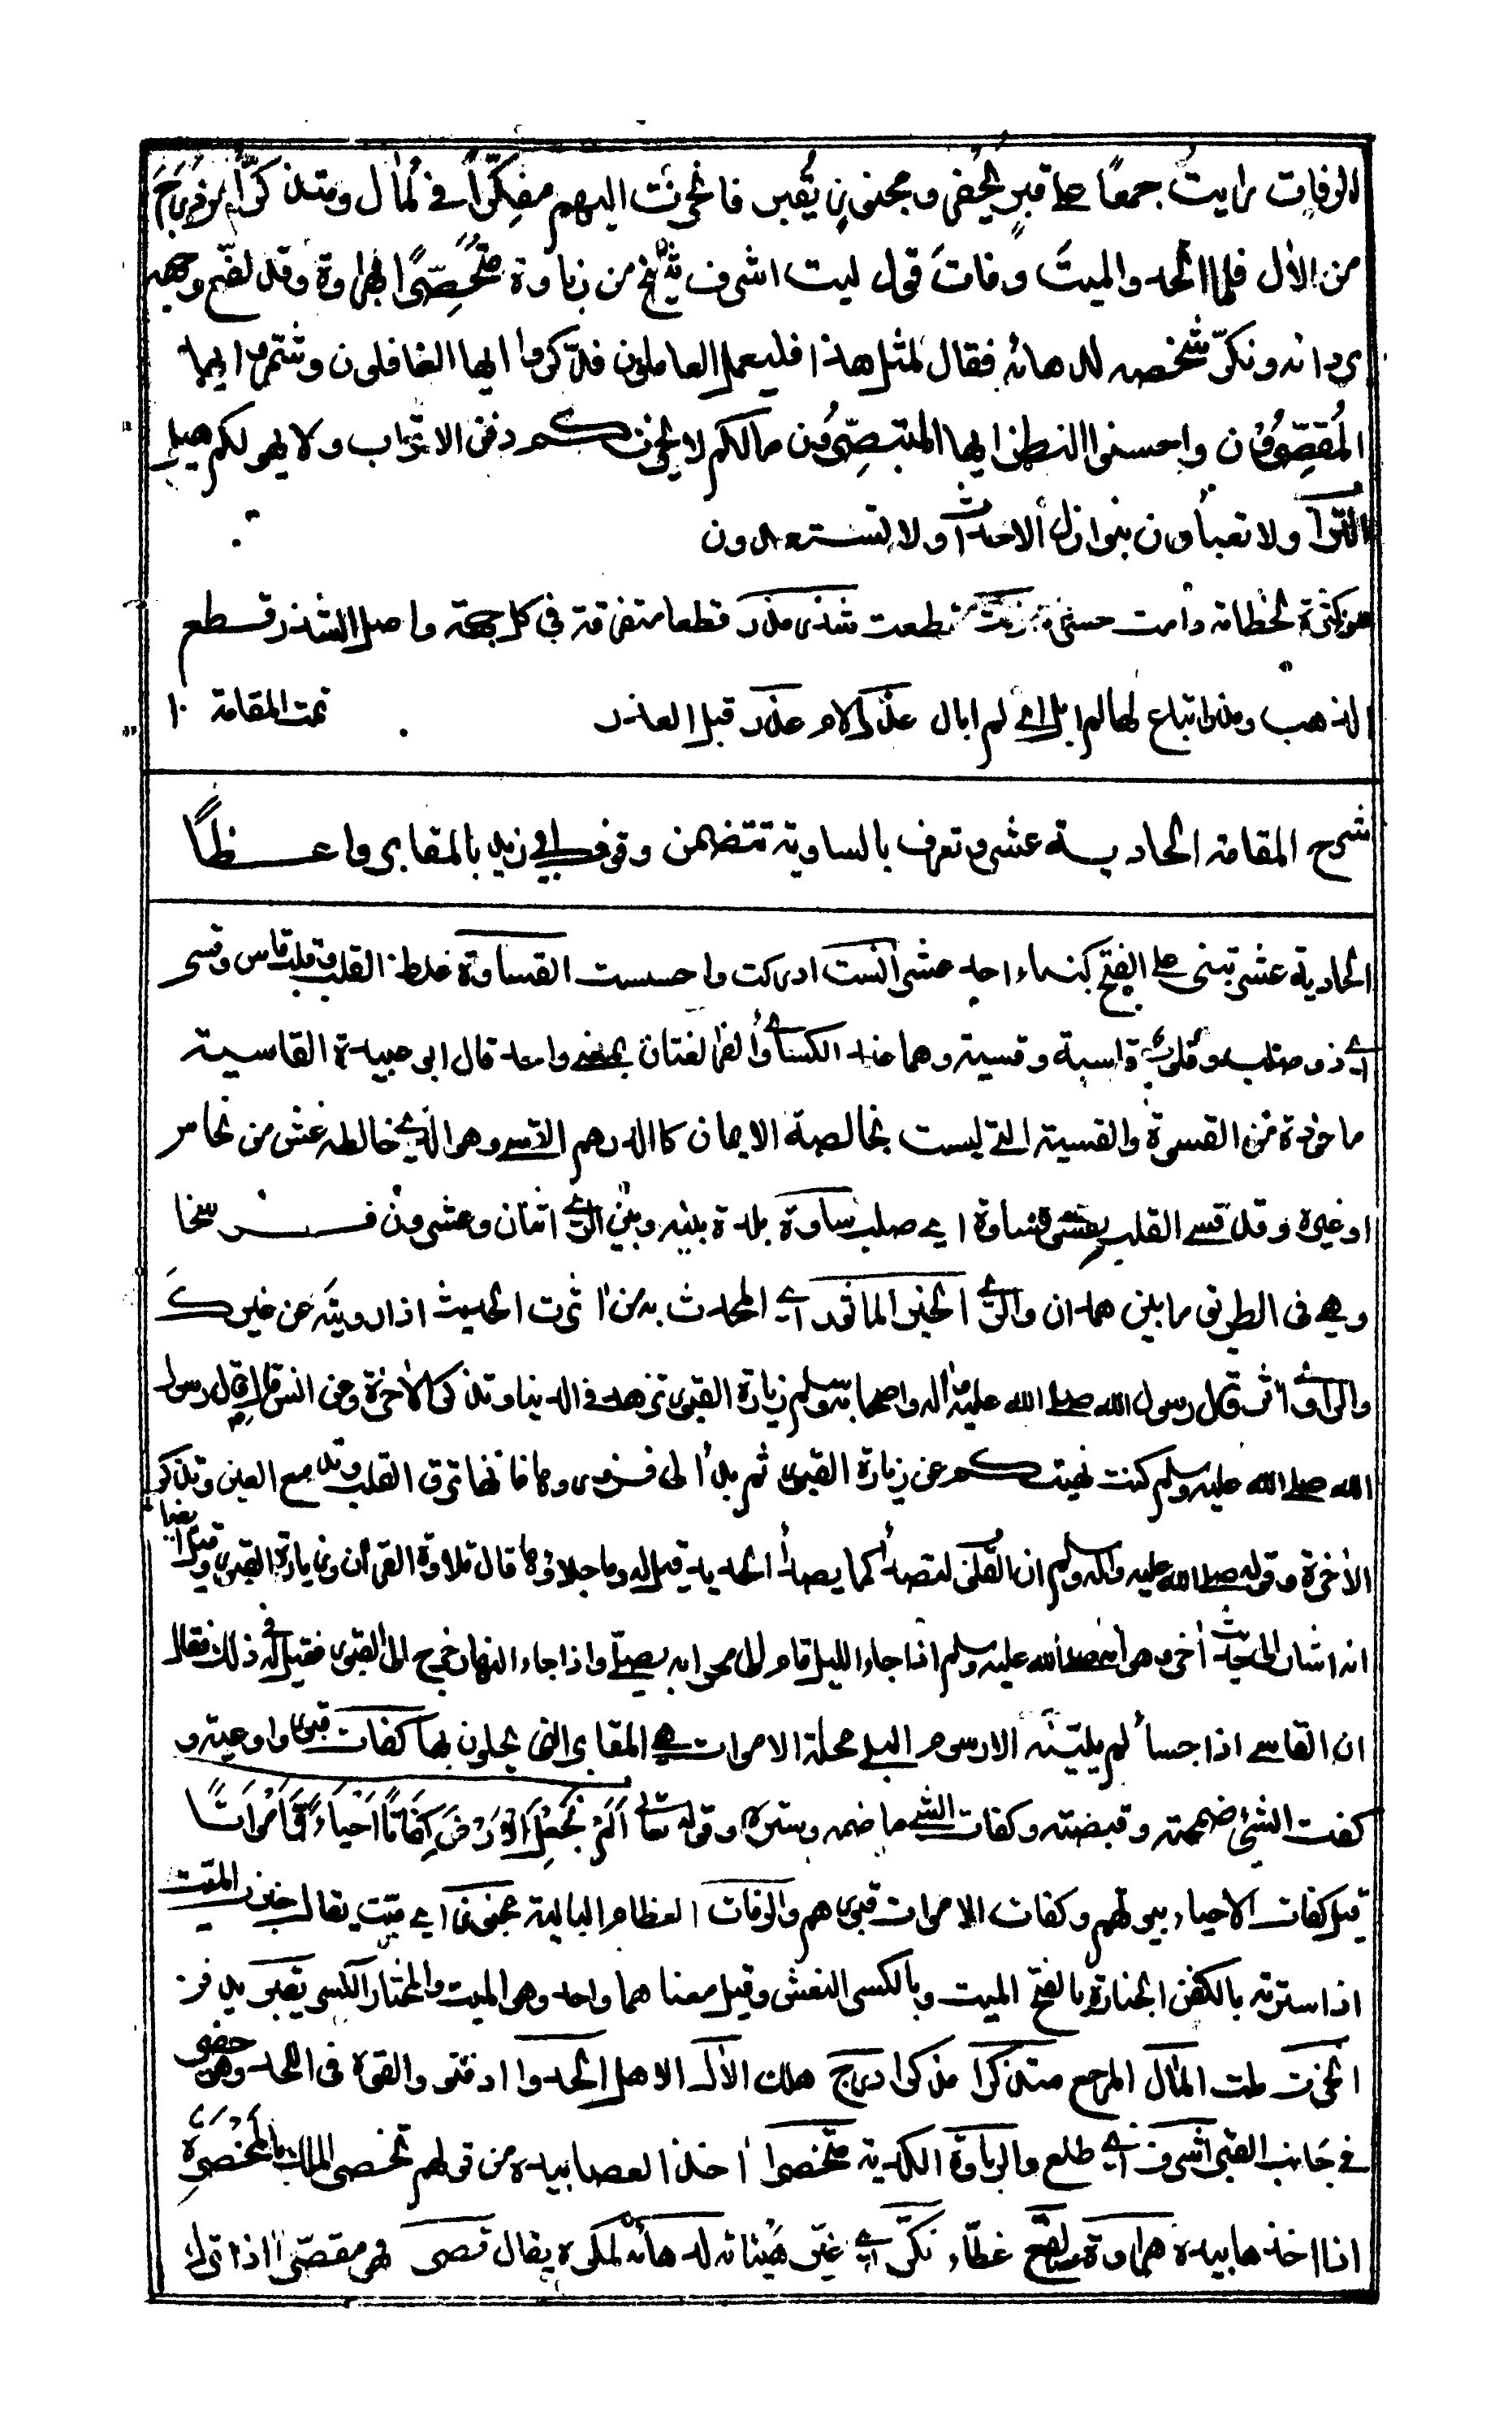 الرفات رايت جمعًا على قبرٍ يُحفر ومجنوزٍ يُقبر فانحزت اليهم مفكّرًا في المآل ومتذكرًا من درج
من الآل فلما الحدوا الميتَ وفاتَ قول ليت اشرف شيخ من رباوة متخصّرًا بهراوة وقد لفّع وجهه
بردائه ونكّر شخصه لدهائه فقال لمثل هذا فليعمل العاملون فادّكروا ايها الغافلون وشمّروا ايها
المُقصّرون واحسنوا النظر ايها المتبصّرون مالكم لا يحزنكم دفن الاتراب ولا يهولكم هيل
التراب ولا تعبأون بنوازل الاحداث ولا تستعدون
قطعت شذر مذر قطعا متفرقة في كل جهة واصل الشذر قطع
الذهب ومذر اتباع لها لم ابل اي لم ابال عذل لام عذر قبل العذر تمت المقامة ١٠
شرح المقامة الحادية عشر وتعرف بالساوية تتضمن وقوف ابي زيد بالمقابر واعظًا
الحادية عشر تبنى على الفتح كبناء احد عشر آنست ادركت واحسست القساوة غلظ القلب وقلب قاس وقسي
اي ذو صلب وقلوب قاسية وقسية وهما عند الكسائي والفرا لغتان بمعنى واحد قال ابو عبيدة القاسية
ماخوذة من القسوة والقسية التي ليست بخالصة الايمان كالدرهم القسي وهو الذي خالطه غش من نحاس
او غيره وقد قسى القلب يقسى قساوة اي صلب ساوة بلدة بينه وبين الري اثنان وعشرون فرسخا
وهي في الطريق ما بين همدان والري الخبر الماثور اي المحدث به من اثرت الحديث اذا رويته عن غيرك
والراوي اثر قال رسول الله صلى الله عليه وآله واصحابه وسلم زيارة القبور تزهد في الدنيا وتذكر الآخرة وعن انس قال قال رسول
الله صلى الله عليه وسلم كنت نهيتكم عن زيارة القبور ثم بدا لي فزوروها فانها ترق القلب وتدمع العين وتذكر
الآخرة وقوله صلى الله عليه وآله وسلم ان القلوب لتصدأ كما يصدأ الحديد قيل له وما جلاؤها قال تلاوة القرآن وزيارة القبور وقيل ايضا
انه اشار الى حديث آخر وهو انه صلى الله عليه وسلم اذا جاء الليل قام الى محرابه يصلي واذا جاء النهار خرج الى القبور فقيل له في ذلك فقال
ان القاسي اذا جسأ لم يليّنه الا رسوم البلى محلة الاموات هي المقابر التي يحلون بها كفات قبور واوعية و
كفت الشيء ضممته وقبضته وكفات الشيء ما ضمه وستره وقوله تعالى اَلَمْ نَجْعَلِ الْاَرْضَ كِفَاتًا اَحْيَاءً وَّاَمْوَاتًا
قيل كفات الاحياء بيوتهم وكفات الاموات قبورهم والرفات العظام البالية مجنوز اي ميت يقال جنز الميت
اذا سترته بالكفن الجنازة بالفتح الميت وبالكسر النعش وقيل معناهما واحد وهو الميت والمختار الكسر يقبر يدفن
انحزت ملت المآل المرجع متذكرا مذكرا درج هلك الآل الاهل الحدوا ادفنوا والقوه في اللحد وهو حفر
في جانب القبر اشرف اي طلع والرباوة الكدية متخصرا اخذ العصا بيده من قولهم تخصر الملك بالمخصرة
اذا اخذها بيده هراوة عصا لفع غطاء نكر اي غير هيئاته لدهائه لمكره يقال قصر فهو مقصر اذا توانى